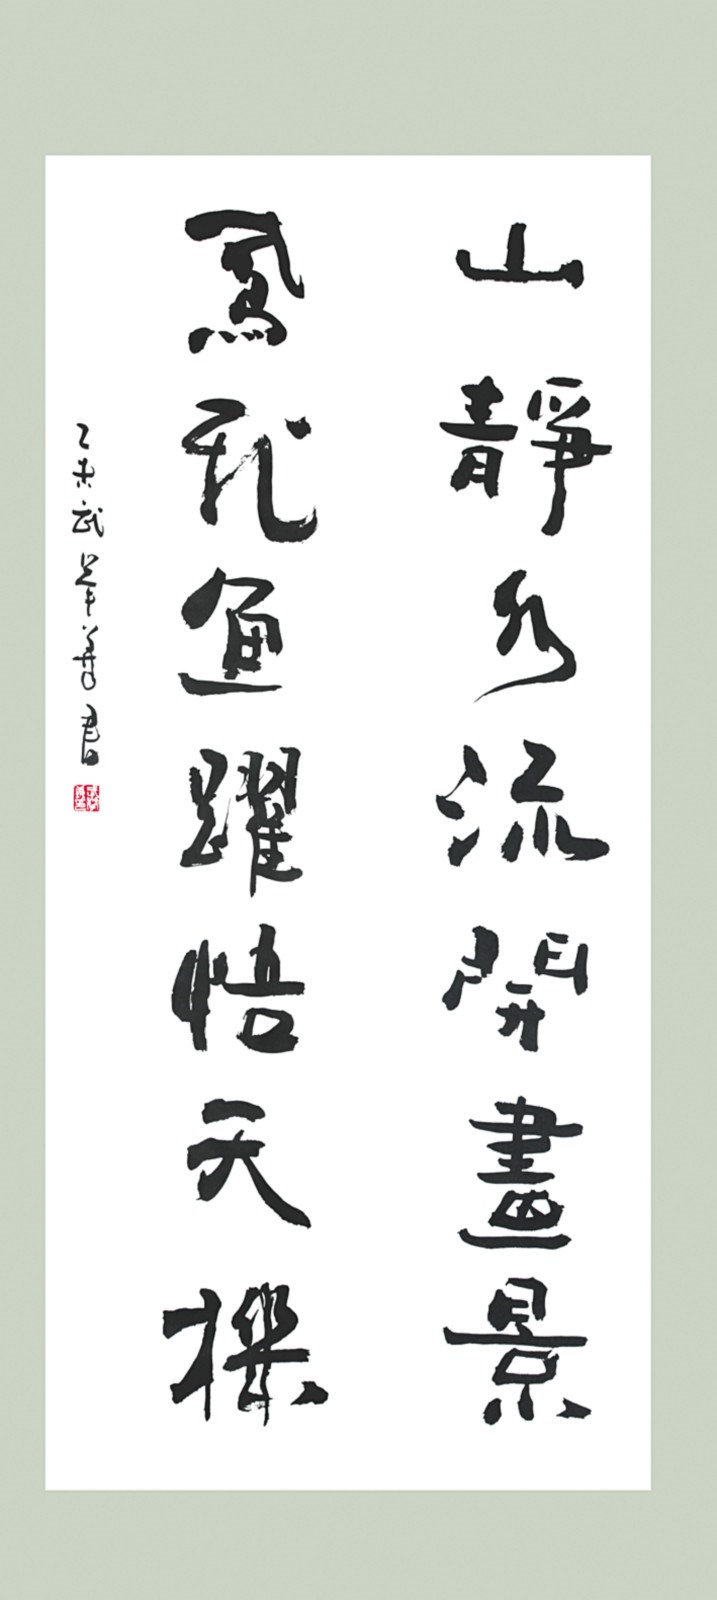 山靜水流開畫景
鳶飛魚躍悟天機
乙未武華書